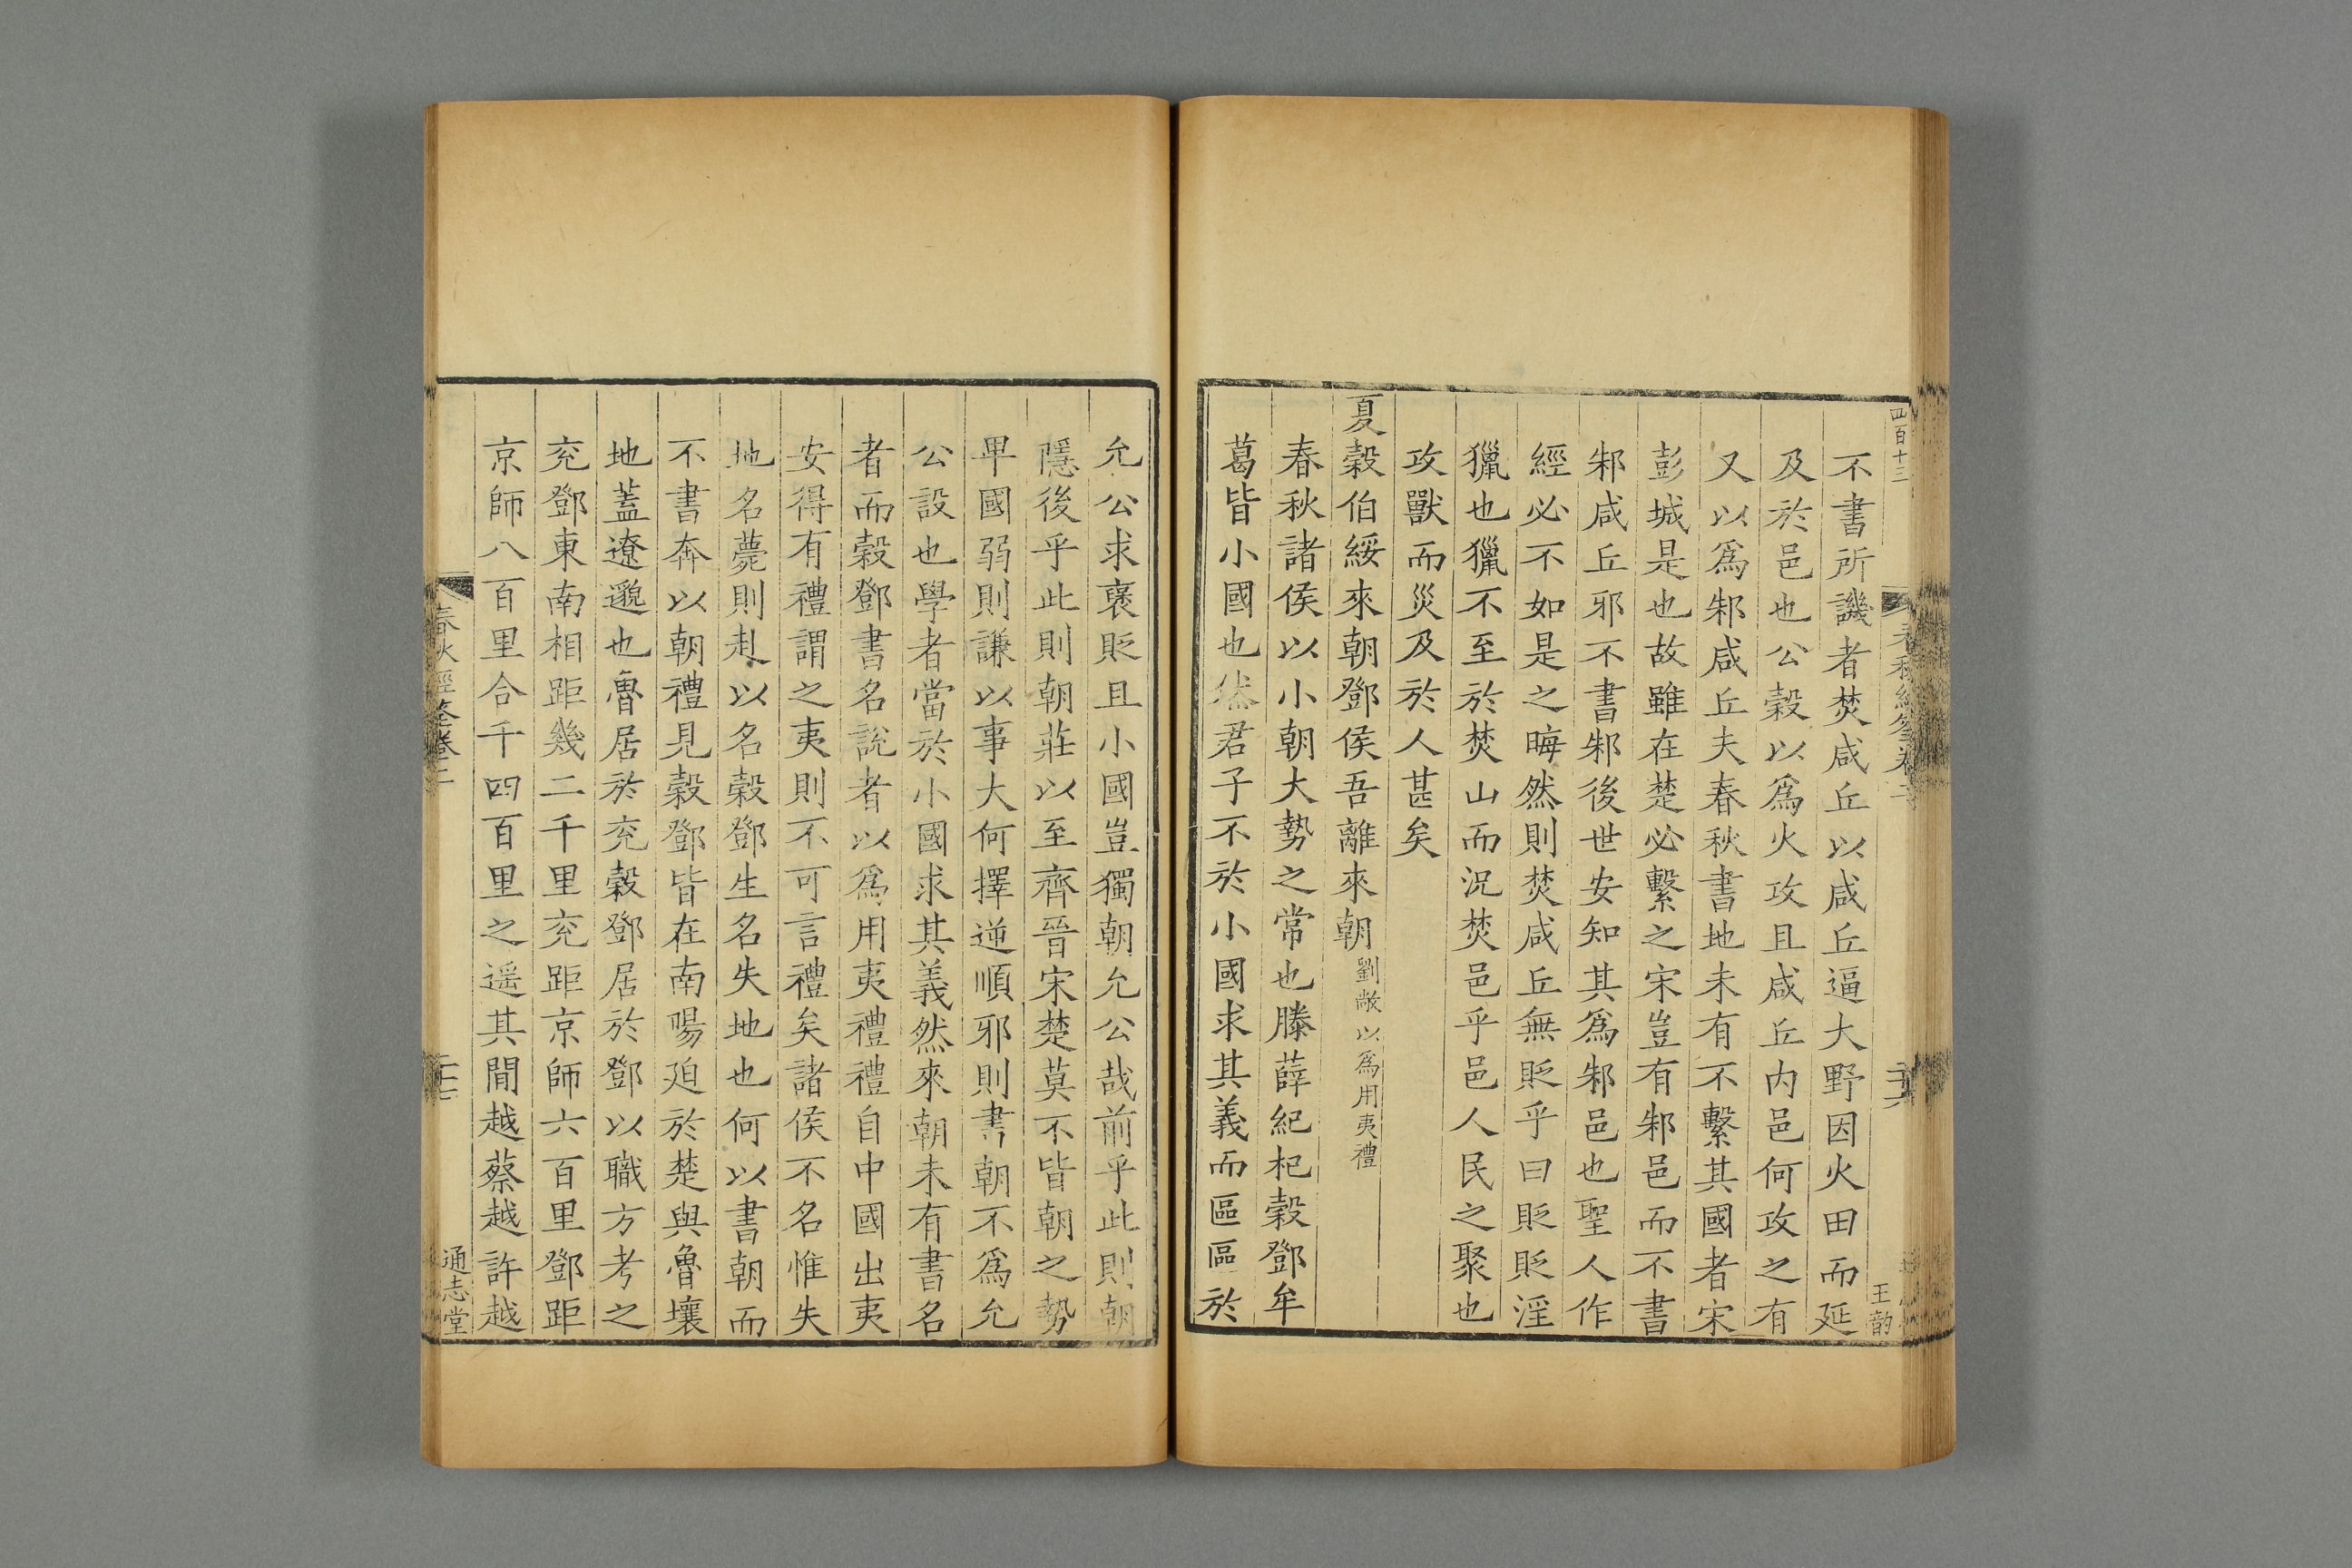 四百十三
春秋經筌卷二
二十六
王韵
不書所譏者焚咸丘以咸丘逼大野因火田而延
及於邑也公穀以爲火攻且咸丘内邑何攻之有
又以爲邾咸丘夫春秋書地未有不繫其國者宋
彭城是也故雖在楚必繫之宋豈有邾邑而不書
邾咸丘邪不書邾後世安知其爲邾邑也聖人作
經必不如是之晦然則焚咸丘無貶乎曰貶貶淫
獵也獵不至於焚山而況焚邑乎邑人民之聚也
攻獸而災及於人甚矣
夏穀伯綏來朝鄧侯吾離來朝劉敞以爲用夷禮
春秋諸侯以小朝大勢之常也滕薛紀杞穀鄧牟
葛皆小國也然君子不於小國求其義而區區於
允公求襃貶且小國豈獨朝允公哉前乎此則朝
隱後乎此則朝莊以至齊晉宋楚莫不皆朝之勢
卑國弱則謙以事大何擇逆順邪則書朝不爲允
公設也學者當於小國求其義然來朝未有書名
者而穀鄧書名說者以爲用夷禮禮自中國出夷
安得有禮謂之夷則不可言禮矣諸侯不名惟失
地名薨則赴以名穀鄧生名失地也何以書朝而
不書奔以朝禮見穀鄧皆在南陽廹於楚與魯壤
地蓋遼邈也魯居於兖穀鄧居於鄧以職方考之
兖鄧東南相距幾二千里兖距京師六百里鄧距
京師八百里合千四百里之遥其間越蔡越許越
春秋經筌卷二
二十七
通志堂